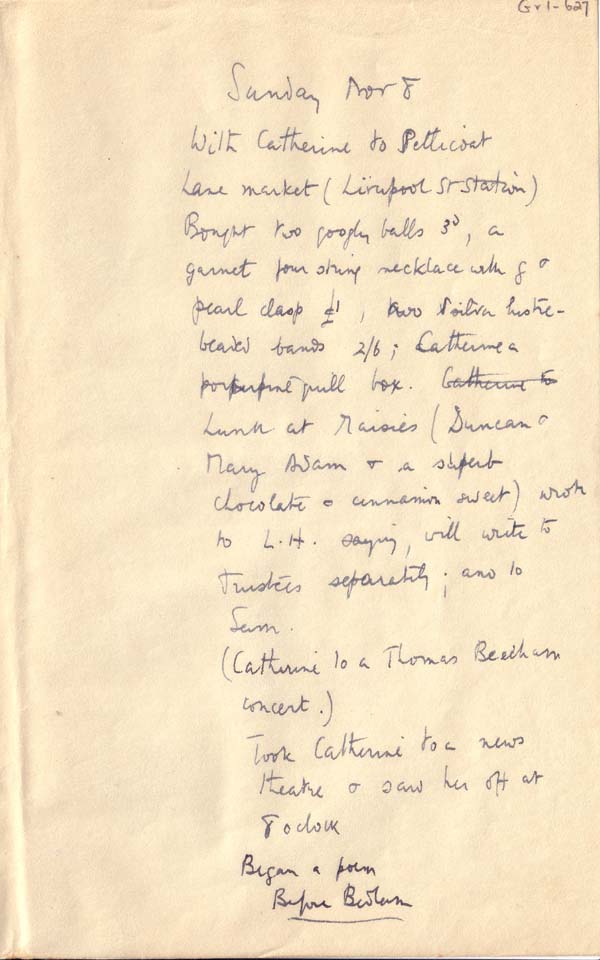 Gr1-627
Sunday Nov 8
With Catherine to Petticoat
Lane market (Liverpool St Station)
Bought two googly balls 3d, a
garnet four string necklace with g &
pearl clasp £1, two lustre-
beaded bands 2/6; Catherine a
porpupine quill box. Catherine to
Lunch at Maisies (Duncan &
Mary Adam & a superb
chocolate & cinnamon sweet) wrote
to L.H. saying, will write to
Trustees separately; and to
Sam.
(Catherine to a Thomas Beecham
concert.)
Took Catherine to a news
theatre & saw her off at
8 oclock
Began a poem
Before Bedlam